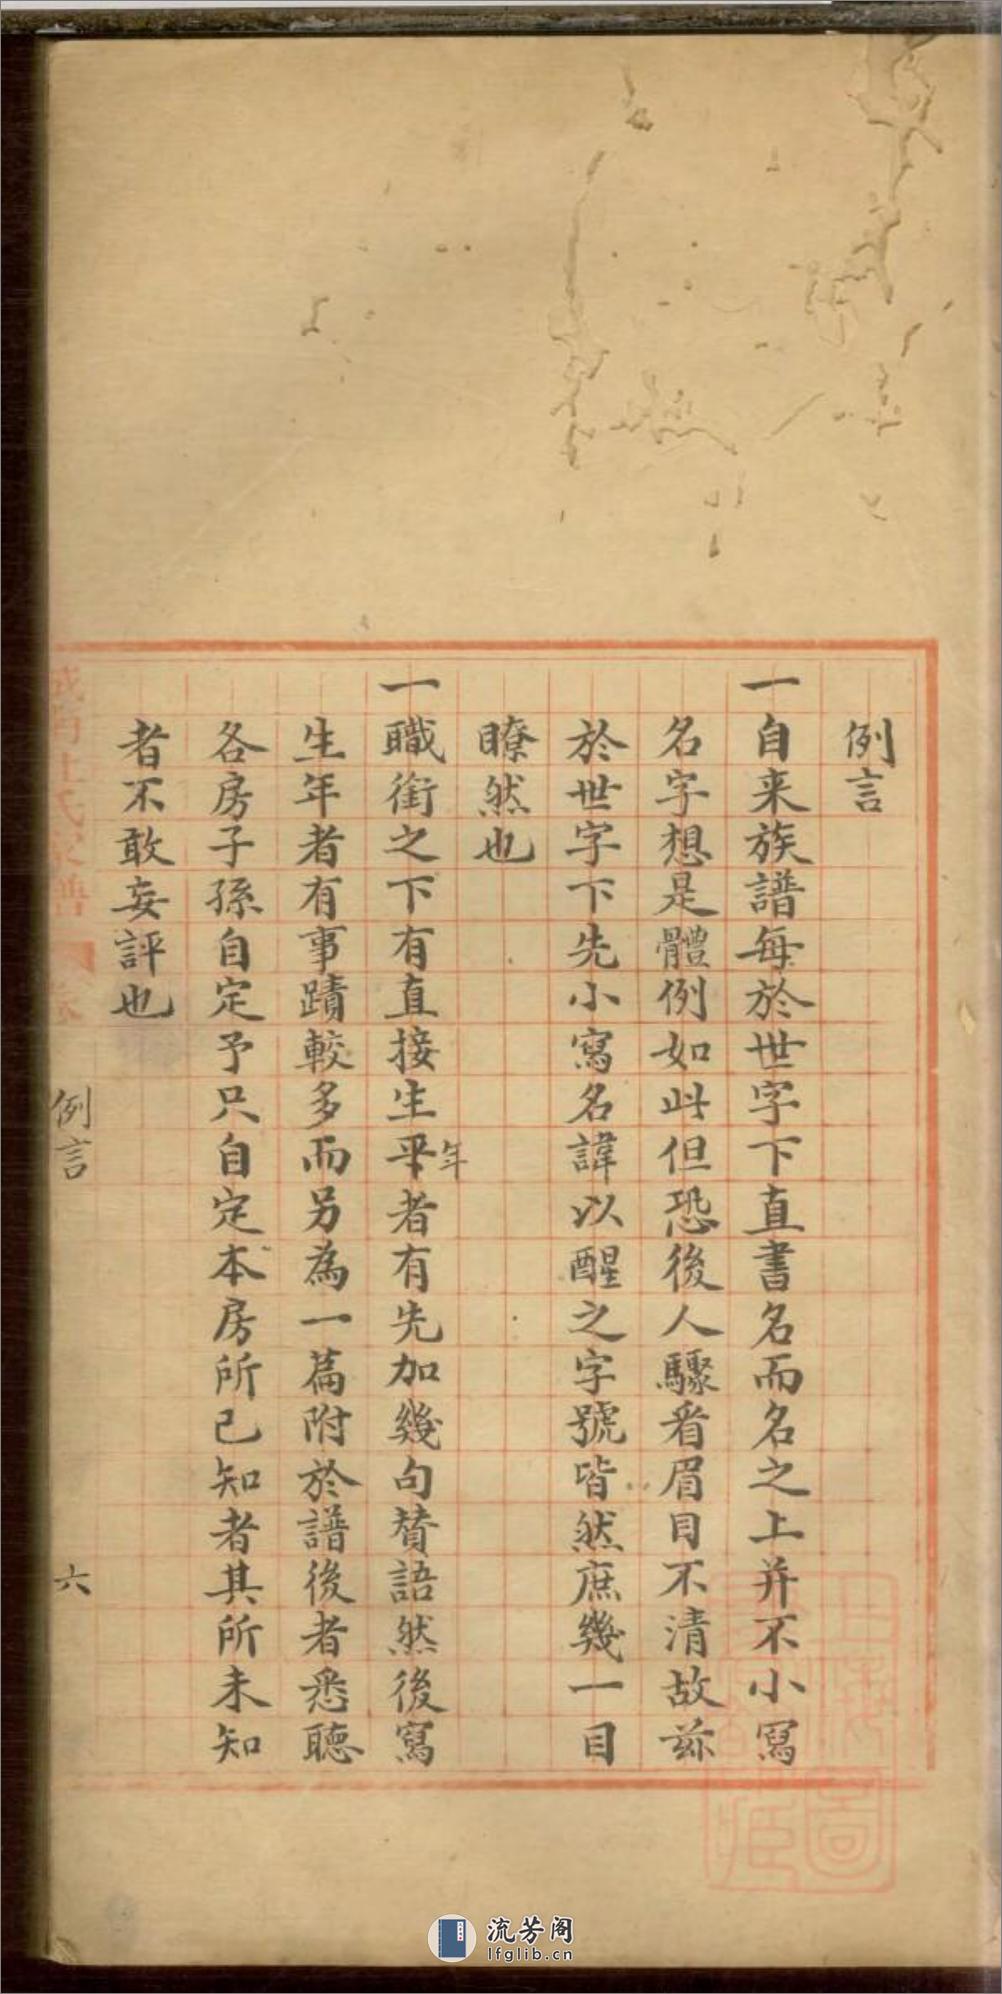 例言
一自来族譜每於世字下直書名而名之上并不小寫
名字想是體例如此但恐後人驟看眉目不清故茲
於世字下先小寫名諱以醒之字號皆然庶幾一目
瞭然也
一職銜之下有直接生平年者有先加幾句賛語然後寫
生年者有事蹟較多而另為一篇附於譜後者悉聽
各房子孫自定予只自定本房所已知者其所未知
者不敢妄評也
例言
六
流芳阁
lfglib.cn